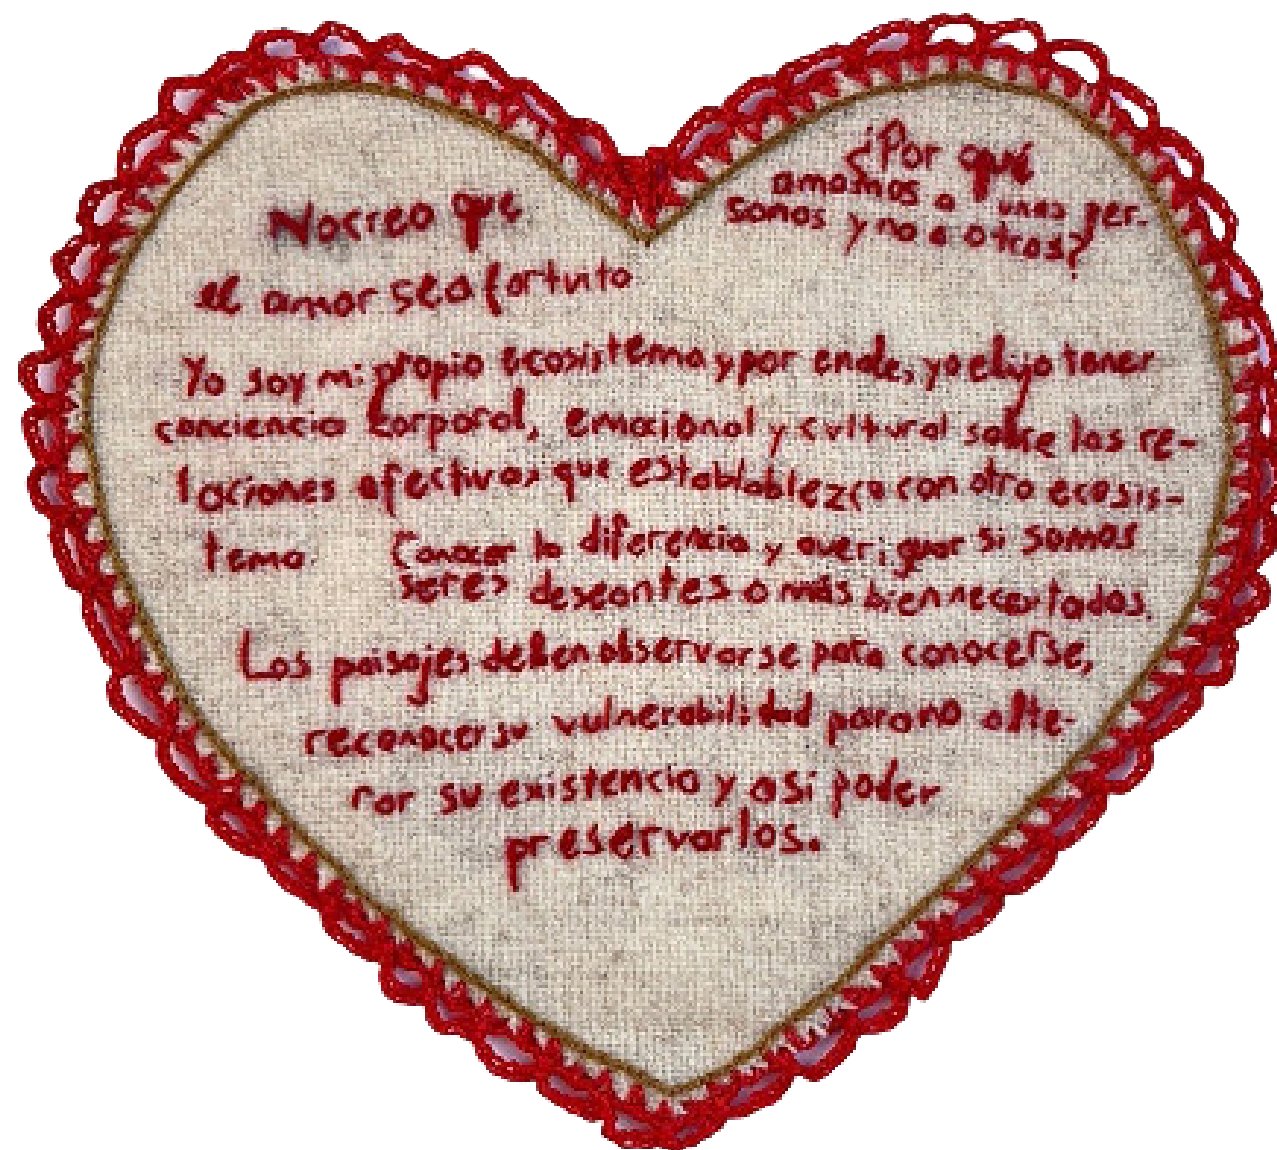 No creo que
el amor sea fortuito
¿Por qué
amamos a unas per-
sonas y no a otras?
Yo soy mi propio ecosistema y por ende, yo elijo tener
conciencia corporal, emocional y cultural sobre las re-
laciones afectivas que establablezco con otro ecosis-
tema. Conocer la diferencia y averiguar si somos
seres deseantes o más bien necesitados.
Los paisajes deben observarse para conocerse,
reconocer su vulnerabilidad para no alte-
rar su existencia y así poder
preservarlos.